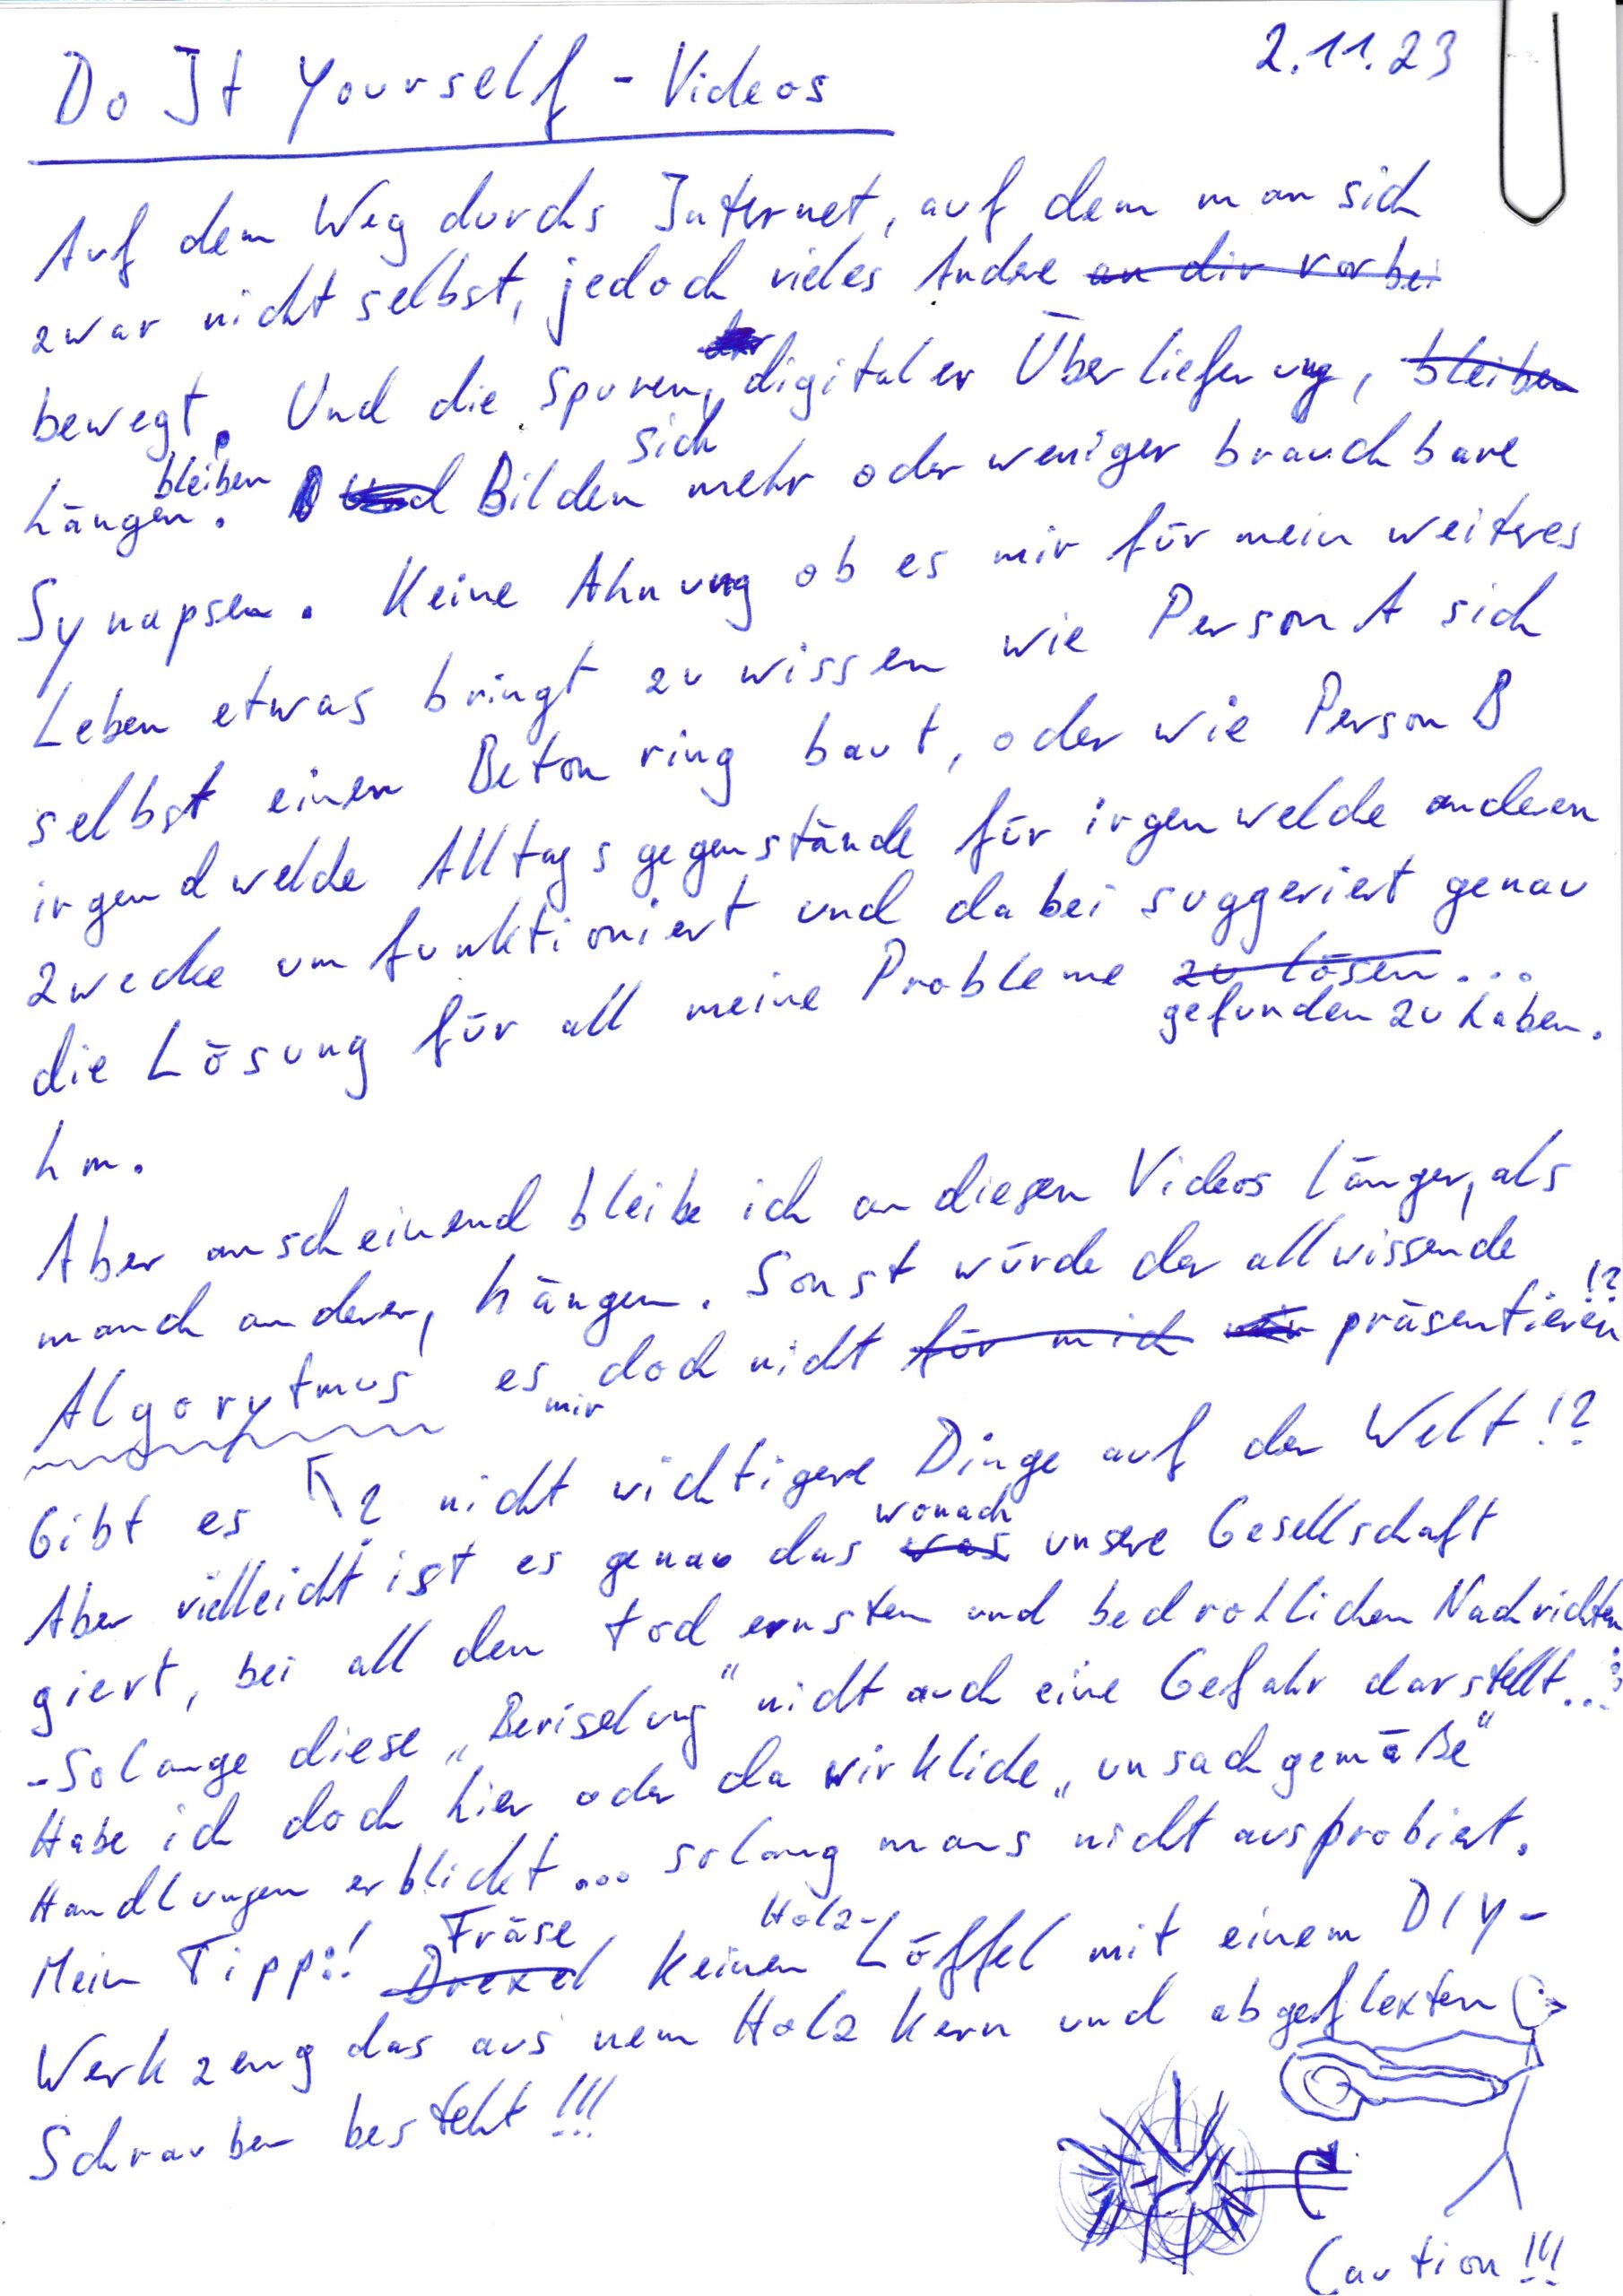 2.11.23
Do It Yourself - Videos
Auf dem Weg durchs Internet, auf dem man sich
zwar nicht selbst, jedoch vieles Andere an dir vorbei
bewegt. Und die Spuren, digitaler Überlieferung, bleiben
hängen bleiben. Und Bilden sich mehr oder weniger brauchbare
Synapsen. Keine Ahnung ob es mir für mein weiteres
Leben etwas bringt zu wissen wie Person A sich
selbst einen Beton ring baut, oder wie Person B
irgendwelche Alltagsgegenstände für irgenwelche anderen
Zwecke umfunktioniert und dabei suggeriert genau
die Lösung für all meine Probleme zu lösen...
gefunden zu haben.
hm.
Aber anscheinend bleibe ich an diesen Videos länger, als
manch anderer, hängen. Sonst würde der allwissende
Algorytmus es mir doch nicht für mich mir präsentieren!?
Gibt es nicht wichtigere Dinge auf der Welt!?
Aber vielleicht ist es genau das was wonach unsere Gesellschaft
giert, bei all den tod ernsten und bedrohlichen Nachrichten
- Solange diese „Beriselung" nicht auch eine Gefahr darstellt...
Habe ich doch hier oder da wirkliche „unsachgemäße"
Handlungen erblickt... solang mans nicht ausprobiert.
Mein Tipp:! Drexel Fräse keinen Holz-Löffel mit einem DIY-
Werkzeug das aus nem Holz kern und abgeflexten
Schrauben besteht!!!
Caution!!!